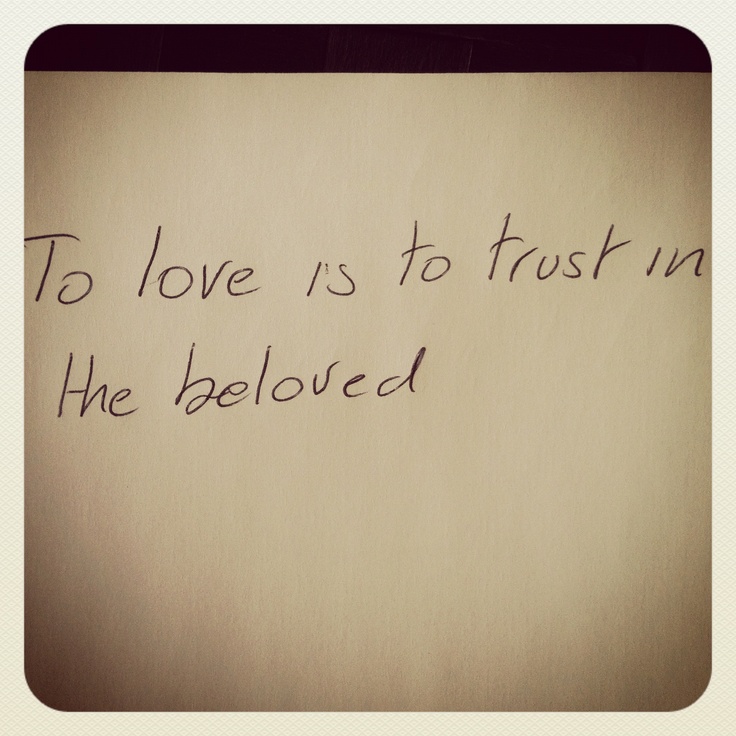 To love is to trust in
the beloved